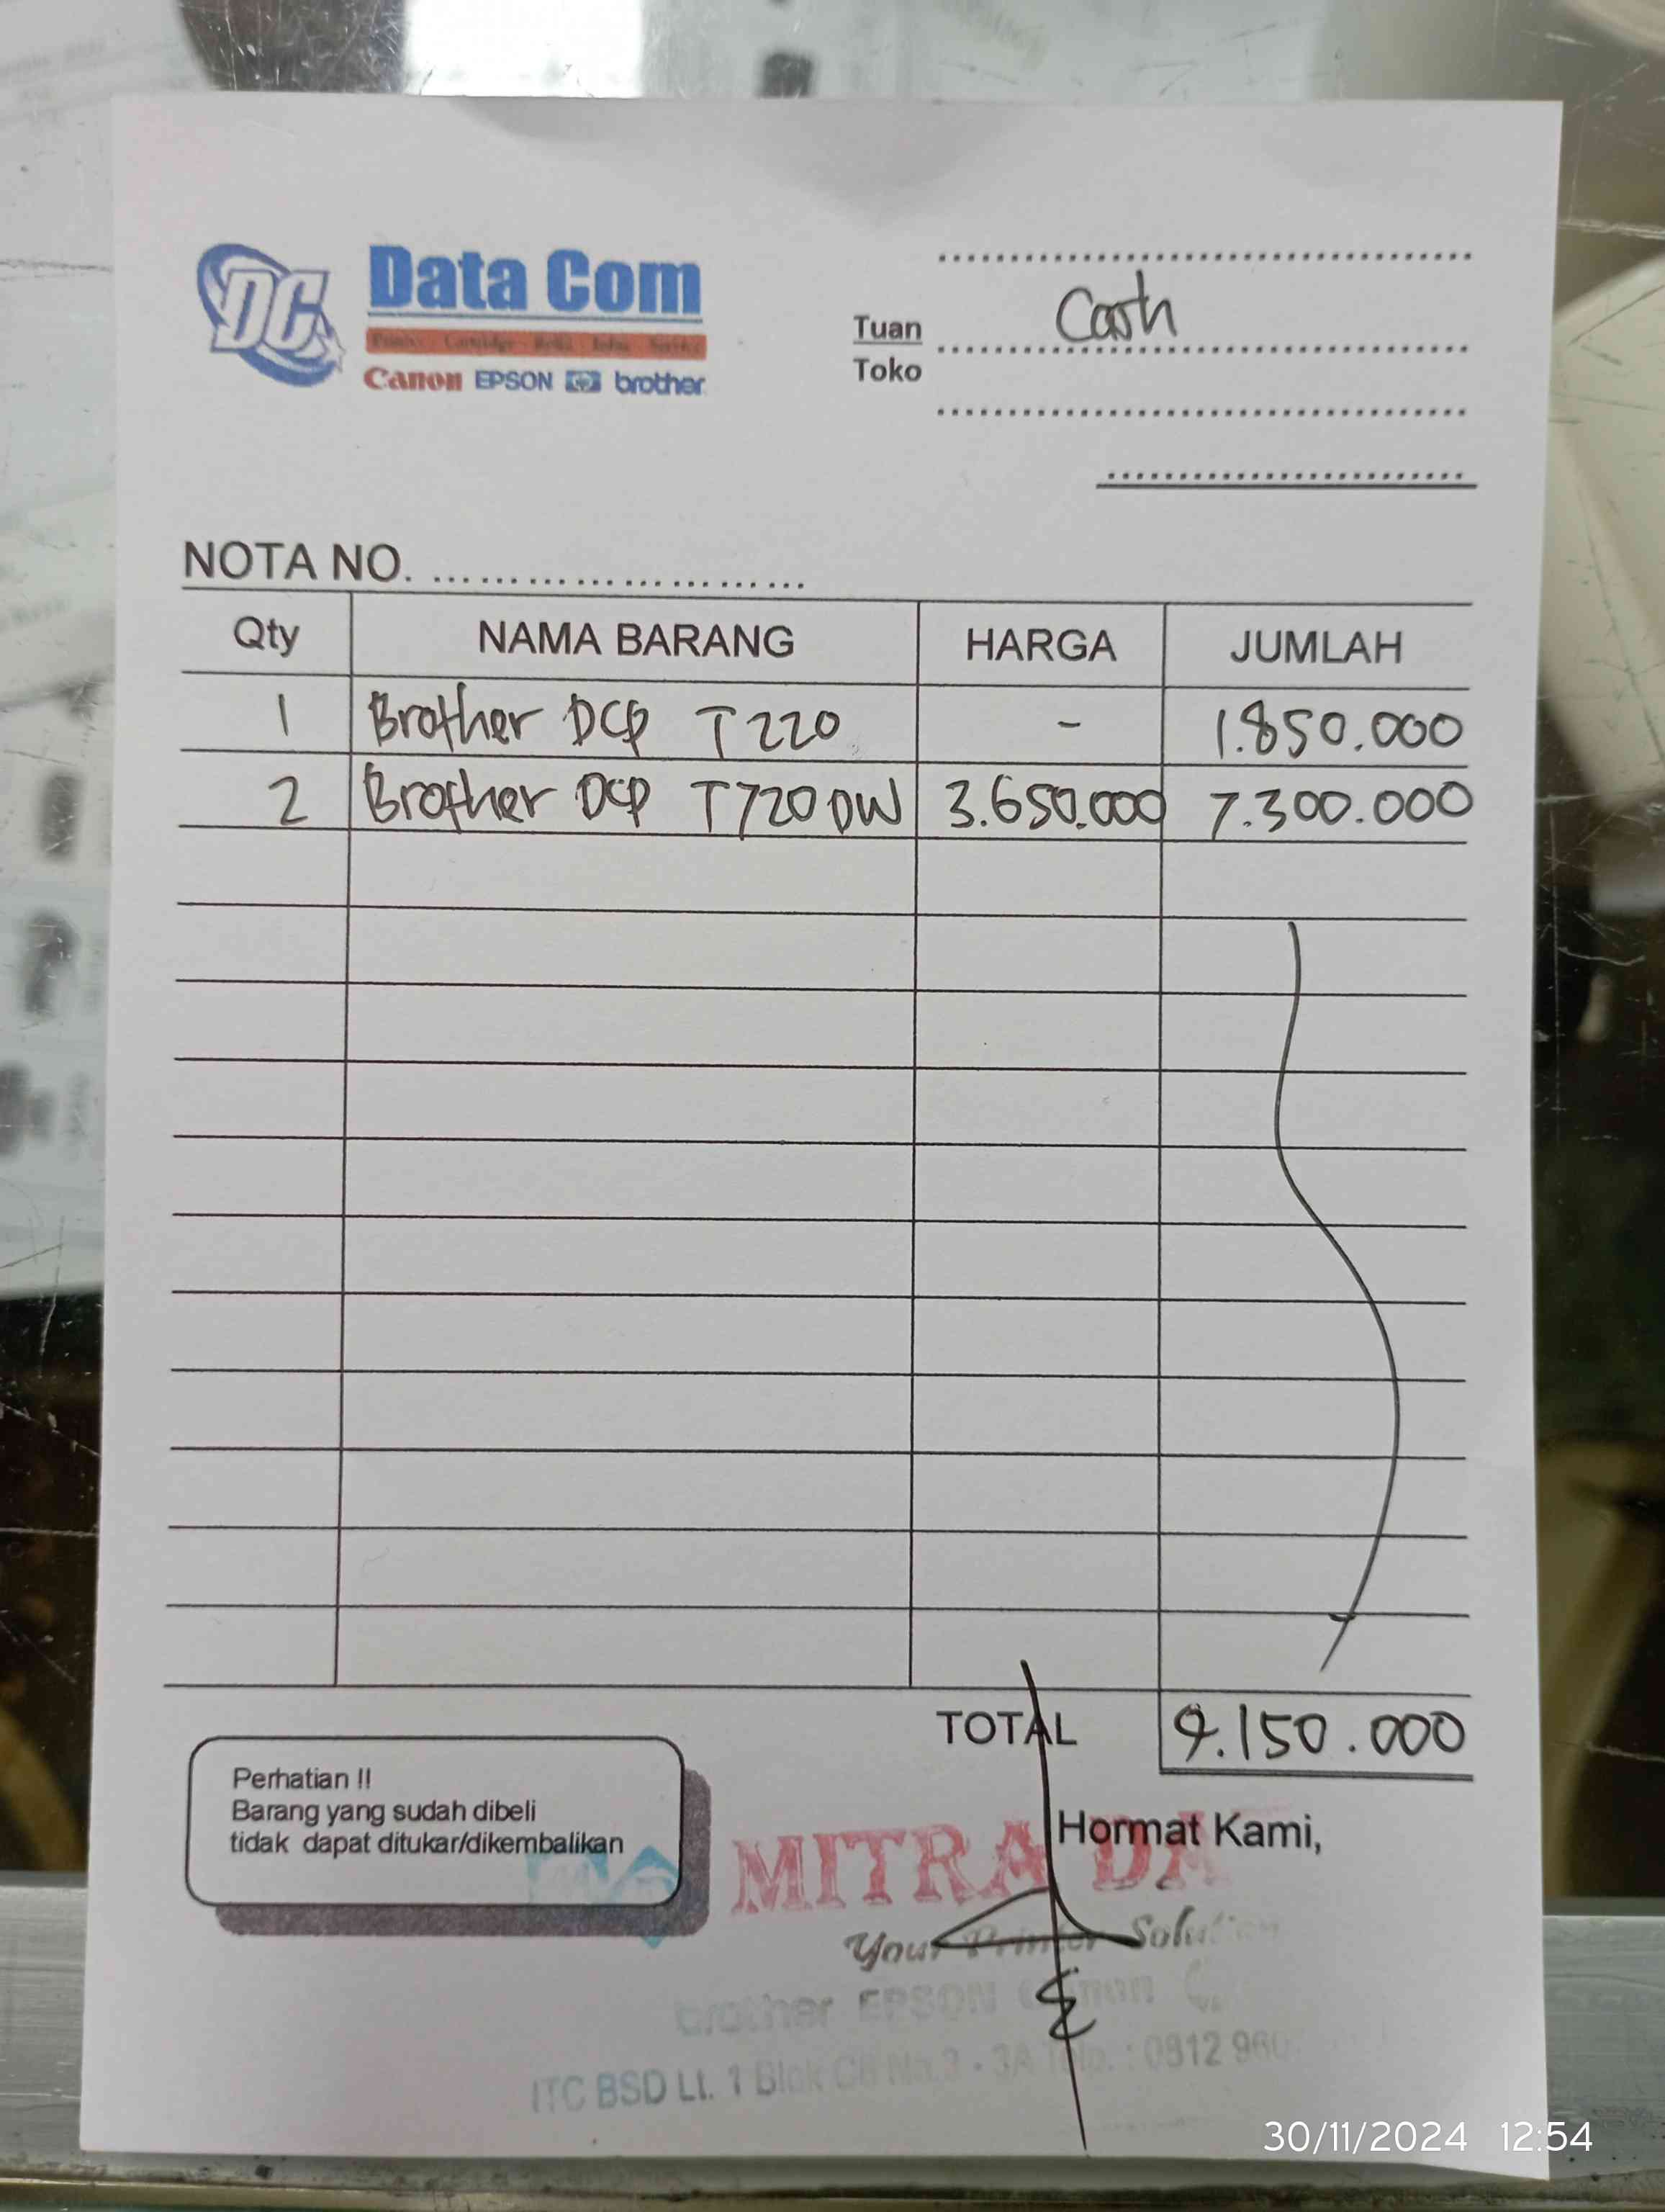 DC
Data Com
Printer Cartridge Refill Infus Service
Canon EPSON hp brother
Tuan Cash
Toko
NOTA NO.
Qty NAMA BARANG HARGA JUMLAH
1 Brother DCP T220 - 1.850.000
2 Brother DCP T720DW 3.650.000 7.300.000
TOTAL 9.150.000
Perhatian !!
Barang yang sudah dibeli
tidak dapat ditukar/dikembalikan
Hormat Kami,
MITRA DA
Your Printer Solution
brother EPSON Canon
ITC BSD Lt. 1 Blok No.3 - 3A Telp. : 0812 960
30/11/2024 12:54